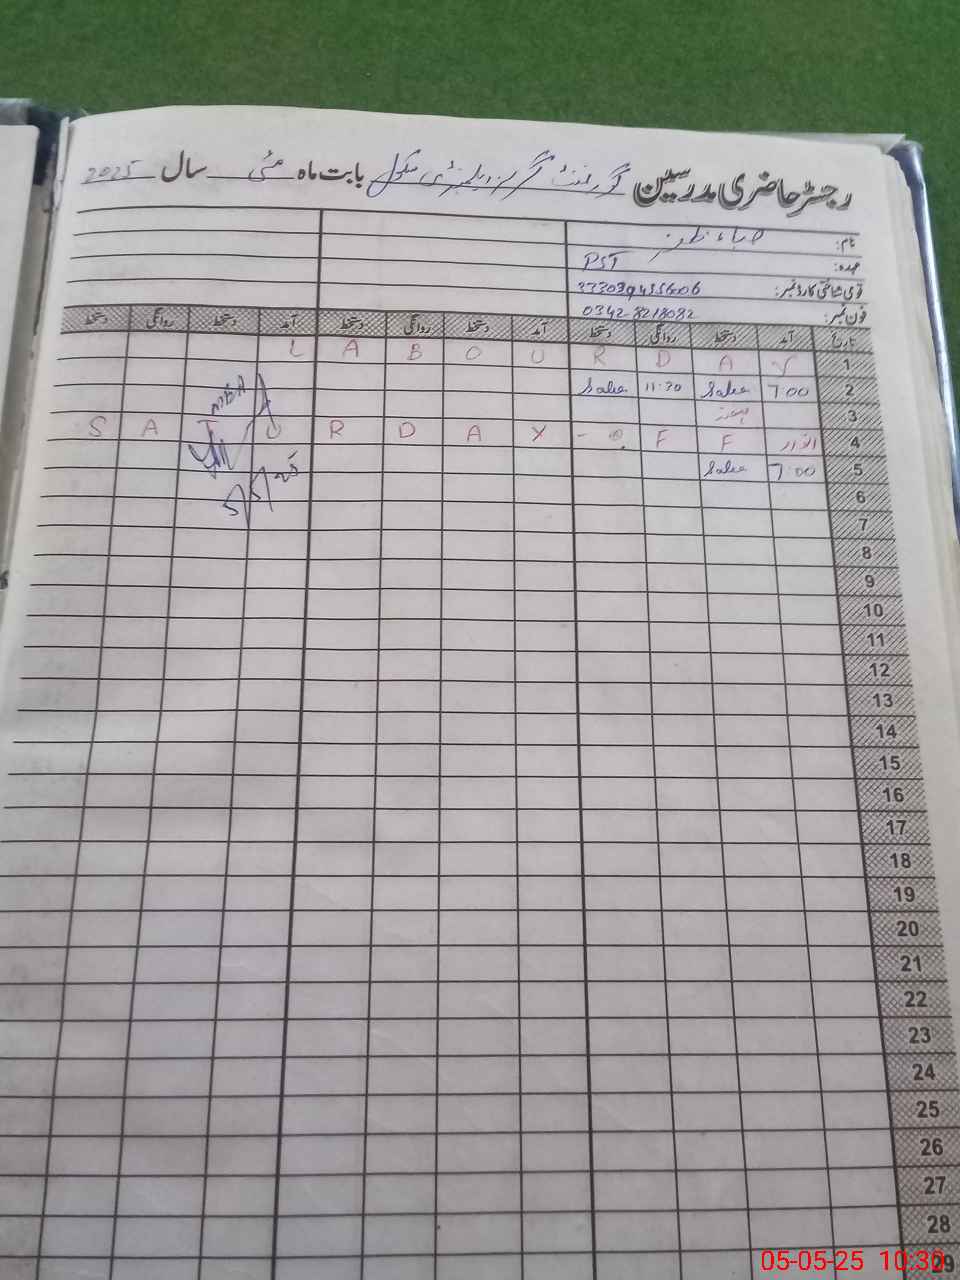 رجسٹر حاضری مدرسین گورنمنٹ گرلز ایلیمنٹری سکول بابت ماہ مئی سال 2025
نام: صباء ظفر
عہدہ: PST
قومی شناختی کارڈ نمبر:
فون نمبر: 0342-8218082
تاریخ آمد دستخط روانگی دستخط آمد دستخط روانگی دستخط آمد دستخط روانگی دستخط
1 L A B O U R D A Y
2 7:00 Saba 11:30 Saba
3 ہفتہ
4 اتوار F F S A T U R D A Y -
5 7:00 Saba
6
7
8
9
10
11
12
13
14
15
16
17
18
19
20
21
22
23
24
25
26
27
28
29
05-05-25 10:30